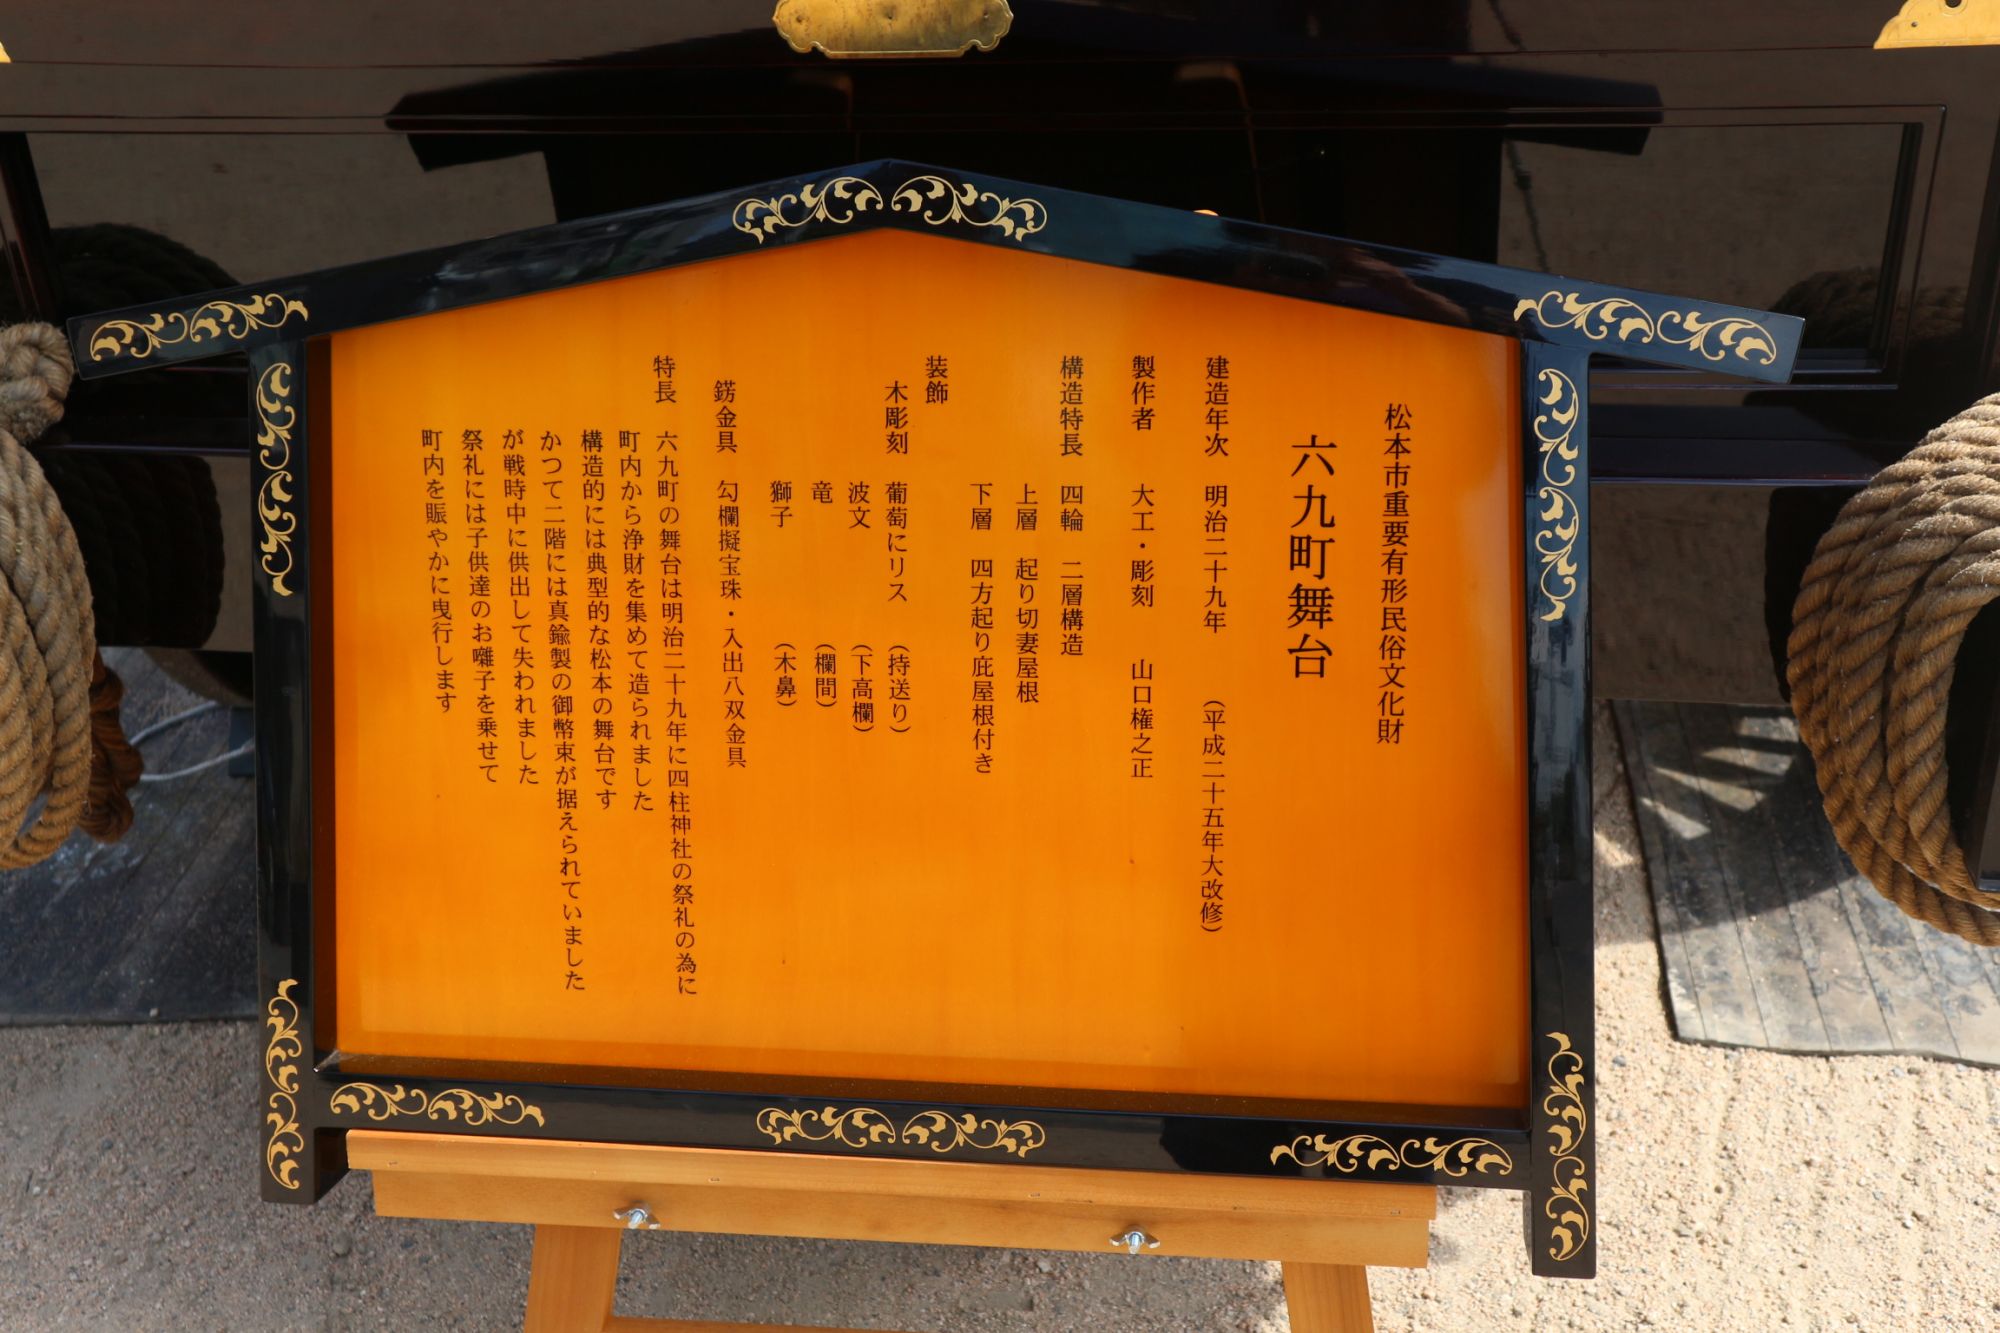 松本市重要有形民俗文化財
六九町舞台
建造年次　明治二十九年　（平成二十五年大改修）
製作者　大工・彫刻　山口権之正
構造特長　四輪　二層構造
上層　起り切妻屋根
下層　四方起り庇屋根付き
装飾
木彫刻　葡萄にリス　（持送り）
波文　（下高欄）
竜　（欄間）
獅子　（木鼻）
錺金具　勾欄擬宝珠・入出八双金具
特長　六九町の舞台は明治二十九年に四柱神社の祭礼の為に
町内から浄財を集めて造られました
構造的には典型的な松本の舞台です
かつて二階には真鍮製の御幣束が据えられていました
が戦時中に供出して失われました
祭礼には子供達のお囃子を乗せて
町内を賑やかに曳行します